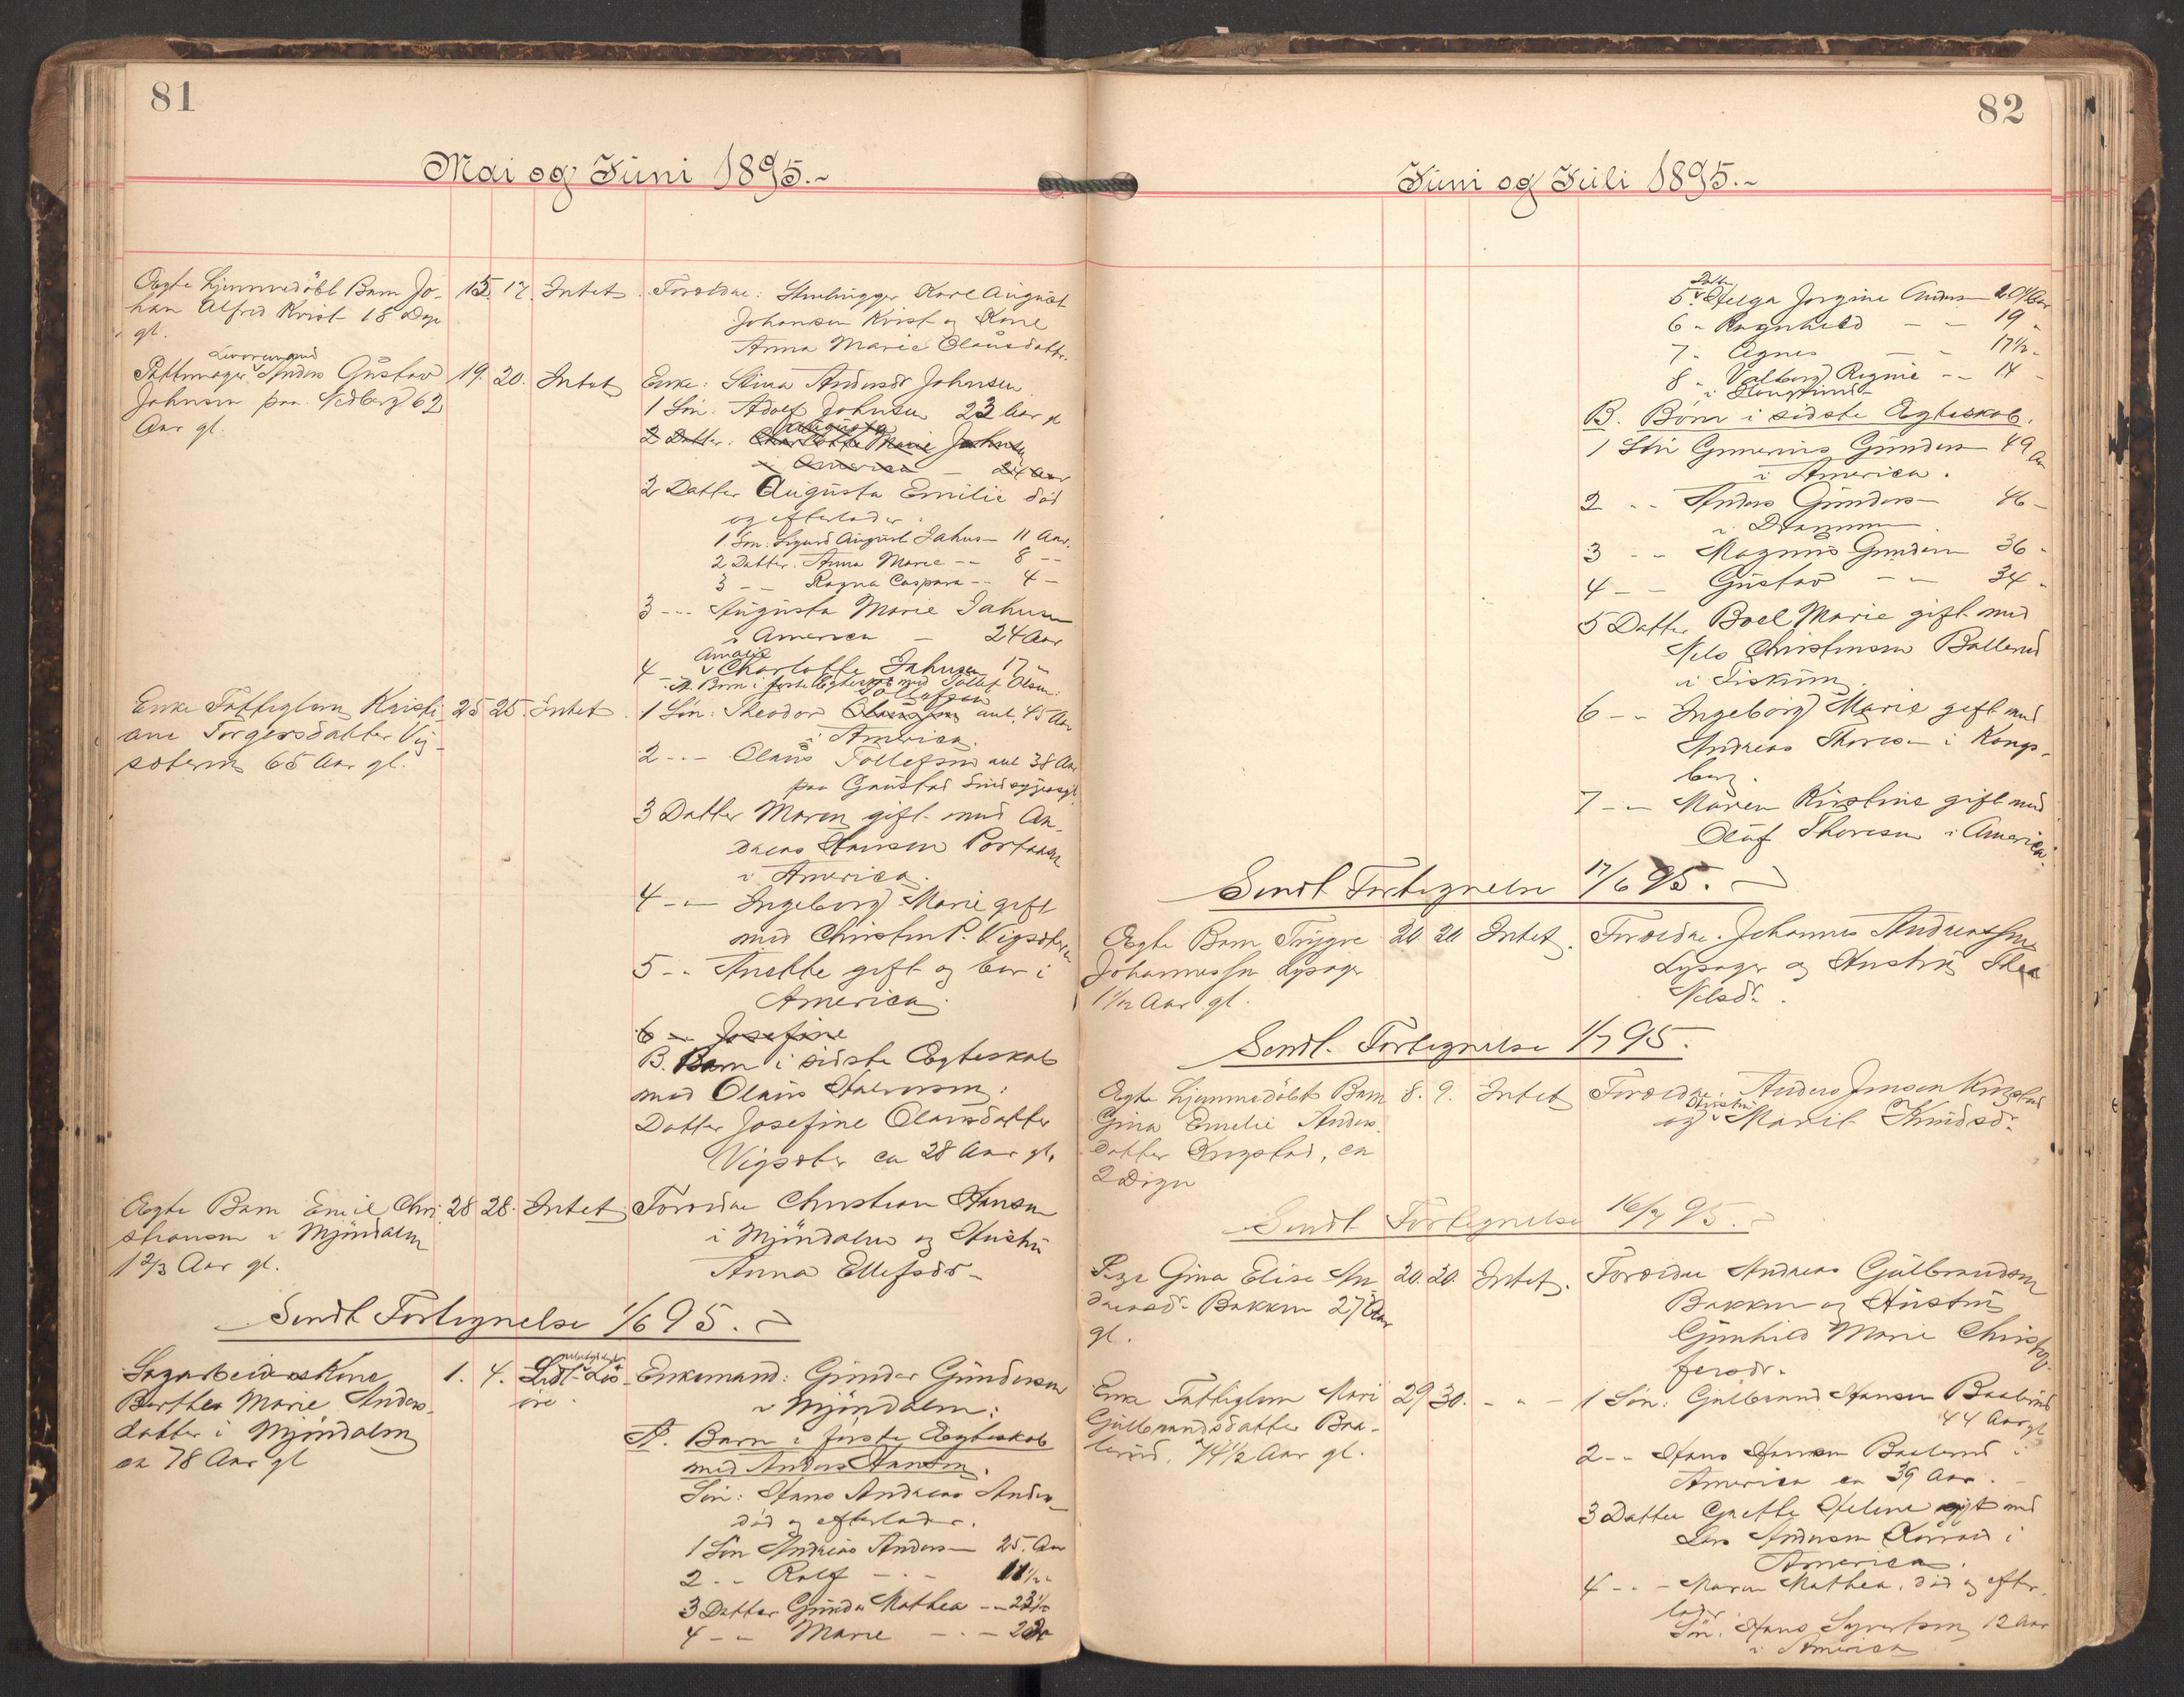 81
Mai og Juni 1895.~
Ægte hjemmedöbt Barn Jo-
han Alfred Kvist 18 Dage
gl.
15. 17. Intet
Forældre: Karl August
Johansen Kvist og Kone
Anna Marie Olausdatter.
Pottemager Anders Gustav
Johnsen paa Vedberg 62
Aar gl.
19. 20. Intet
Enke: Stina Andersdr Johnsen
1 Sön: Adolf Johnsen 23 Aar gl
2 Datter: Charlotte Marie Johnsen
i America – 24 Aar
2 Datter Augusta Emilie död
og efterlader:
1. Sön: Sigurd August Johns– 11 Aar.
2 Datter. Anna Marie –– 8 ––
3 – Ragna Caspara –– 4 –
3 --- Augusta Marie Johnsen
i America – 24 Aar
Amalie
4 – Charlotte Johnsen 17 –
Enke Fattiglem Kristi-
ane Torgersdatter Vig-
soteren 65 Aar gl.
25 25. Intet
A. Born i förste Ægteskab med Tollef Olsen:
Tollefsen
1 Sön: Theodor ant. 45 Aar
i America.
2 --- Olaus Tollefsen ant 38 Aar
paa Gaustad Sindsygeasyl
3 Datter Maren gift med An-
dreas Hansen
i America.
4 -- Ingeborg Marie gift
med Christen P. Vigsoteren
5 -- Anette gift og bor i
America.
6 -- Josefine
B. Barn i sidste Ægteskab
med Olaus Halvorsen:
Datter Josefine Olausdatter
Vigsoter ca 28 Aar gl.
Ægte Barn Emil Chri-
stiansen i Mjöndalen
1 2/3 Aar gl.
28 28. Intet
Forældre Christian Hansen
i Mjöndalen og Hustru
Anna Ellefsdr–
Sendt Fortegnelse 1/6 95.
Sagarbeiderskone
Berthea Marie Anders-
datter i Mjöndalen
ca 78 Aar gl
1. 4. Lidt Lös-
öre.
Enkemand: Gunder Gundersen
i Mjöndalen:
A. Barn i förste Ægteskab
med Anders Hansen.
Sön: Hans Andreas Anders–
död og efterlader.
1 Sön Andreas Anders– 25. Aar
2 -- Rolf –.–
3 Datter Gunda Mathea ––
4 –– Marie –.–
82
Juni og Juli 1895.~
Datter
5. Helga Jorgine Anders– Aar
6 – Ragnhild – – 19 –
7 – Agnes – – 17½ –
8 – Valborg Regine –– 14 –
B. Born i sidste Ægteskab.
1 Sön Gunerius Gunders– 49 Aar
i America.
2 -- Anders Gunders– 46 –
i Drammen
3 -- Magnus Gundersen 36 –
4 –– Gustav –– 34 –
5 Datter Boel Marie gift med
Nils Christensen Ballerud
i Fiskum.
6 –– Ingeborg Marie gift med
Andreas Thores– i Kongs-
berg.
7 –– Maren Kirstine gift med
Oluf Thoresen i America.
Sendt Fortegnelse 17/6 95.
Ægte Barn Trygve
Johannessen Lysager
1 1/12 Aar gl.
20 20 Intet.
Forældre. Johannes Andreassen
Lysager og Hustru Thea
Nilsdr.
Sendt. Fortegnelse 1/7 95.
Ægte hjemmedöbt Barn
Gina Emelie Anders-
datter Krogstad, ca
2 Dage
8. 9. Intet
Forældre: Anders Jensen Krogstad
Hustru
og Marit Knudsdr.
Sendt Fortegnelse 16/7 95.
Pige Gina Elise An-
dreasdr Bakken 27 Aar
gl.
20. 20. Intet.
Forældre Andreas Gulbrandsen
Bakken og Hustru
Gunhild Marie Christof-
fersdr.
Enke Fattiglem Mari
Gulbrandsdatter Baa-
lerud, 74½ Aar gl.
29 30. – " –
1 Sön: Gulbrand Hansen Baalerud
44 Aar gl
2 -- Hans Hansen Baalerud i
America ca 39 Aar. –
3 Datter Grethe Helene gift med
Lars Andersen i
America.
4 -- – Maren Mathea, död og efter-
lader.
Sön: Hans Syvertsen 12 Aar
i America